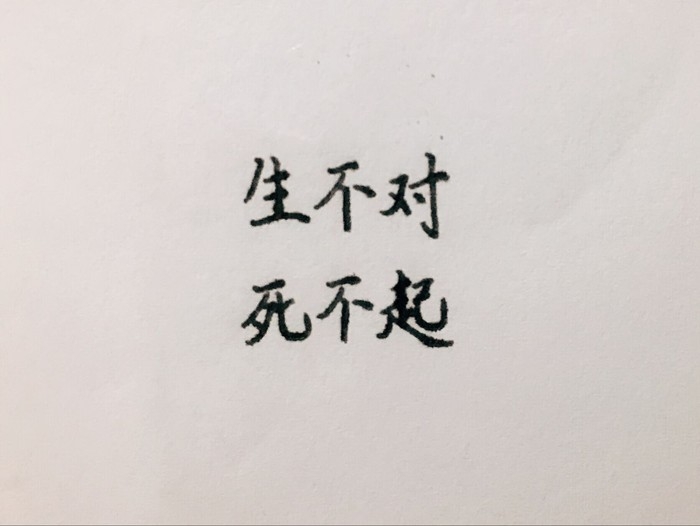 生不对
死不起